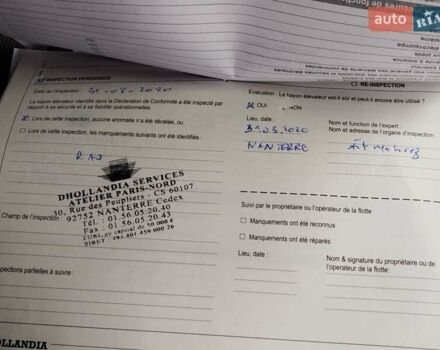 auto RIA
INSPECTION PERIODIQUE
RE-INSPECTION
Date de l'inspection : 31-03-2020
Evaluation : Le hayon élévateur est-il sûr et peut-il encore être utilisé ?
Le hayon élévateur identifié dans la Déclaration de Conformité a été inspecté par
rapport à sa sécurité et à sa fiabilité opérationnelle.
OUI NON
Lors de cette inspection, aucune anomalie n'a été décelée, ou
Lieu, date :
Nom et function de l'expert :
Lors de cette inspection, les manquements suivants ont été identifiés :
31.03.2020
Nom et adresse de l'organe d'inspection:
NANTERRE
RAS
DHOLLANDIA SERVICES
ATELIER PARIS-NORD
10, Rue des Peupliers - CS 60107
92752 NANTERRE Cedex
Tél. : 01.56.05.20.40
Fax : 01.56.05.20.43
Champ de l'inspection :
Suivi par le propriétaire ou l'opérateur de la flotte
Manquements ont été reconnus
Manquements ont été réparés
Lieu, date :
Nom & signature du propriétaire ou de
l'operateur de la flotte:
spections partielles à suivre :
HOLLANDIA